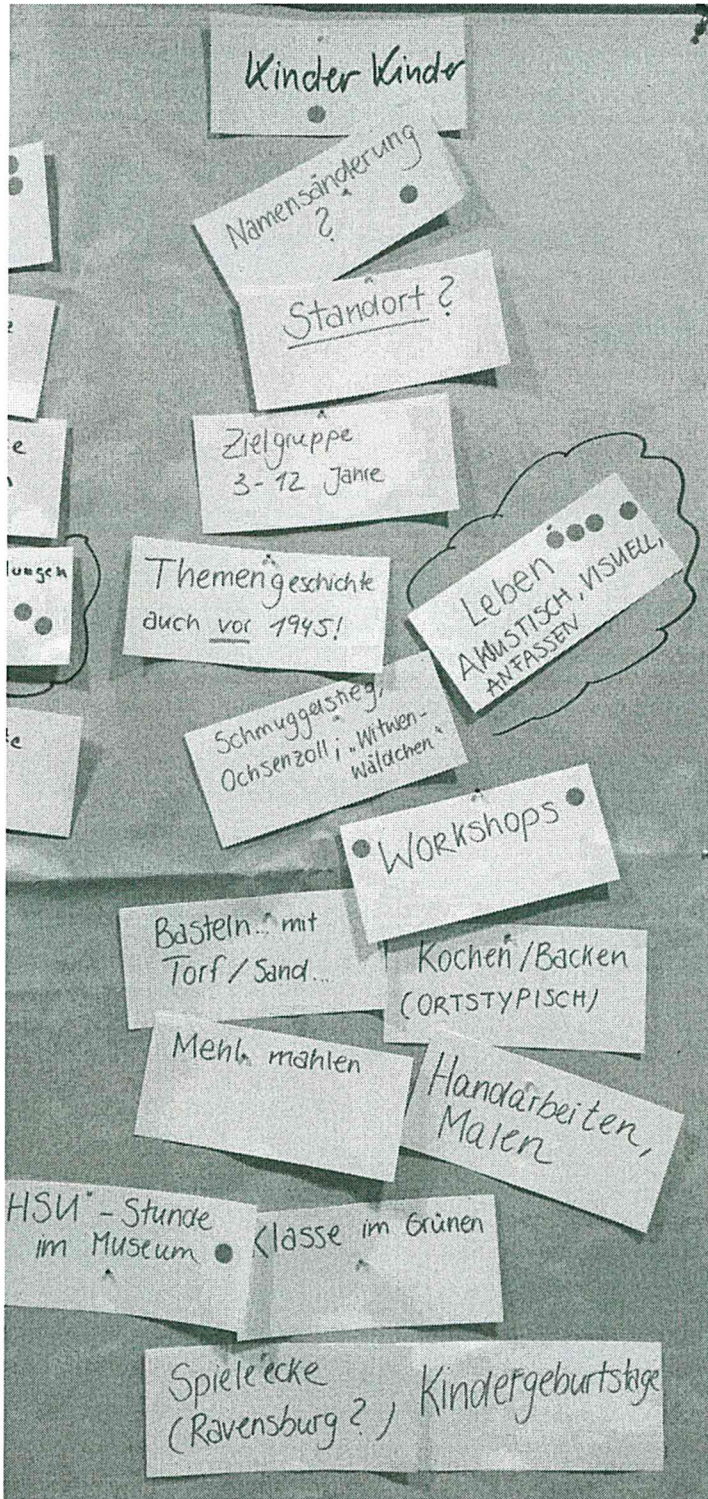 Kinder Kinder
Namensänderung
?
Standort ?
Zielgruppe
3-12 Jahre
Themengeschichte
auch vor 1945!
Leben
AKUSTISCH, VISUELL,
ANFASSEN
lungen
Schmuggelstieg,
Ochsenzoll; „Witwen-
wäldchen"
Workshops
Basteln... mit
Torf/Sand...
Kochen/Backen
(ORTSTYPISCH)
Mehl mahlen
Handarbeiten,
Malen
HSU"-Stunde
im Museum
Klasse im Grünen
Spieleecke
(Ravensburg?)
Kindergeburtstage